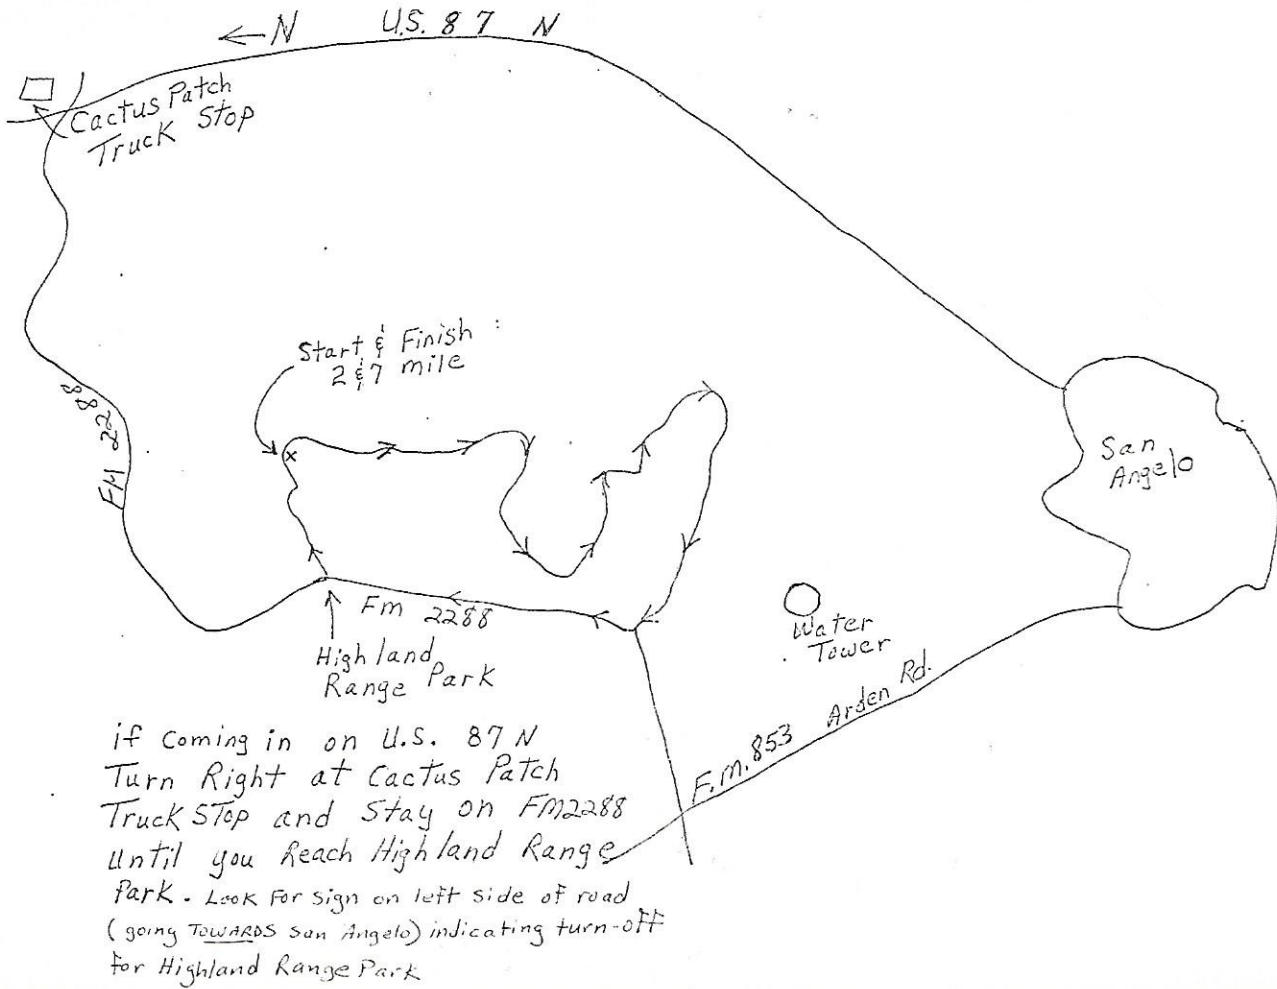 ← N U.S. 87 N
Cactus Patch
Truck Stop
Start & Finish
2 & 7 mile
FM 2288
San
Angelo
Fm 2288
Water
Tower
Highland
Range Park
Arden Rd.
F.m. 853
if coming in on U.S. 87 N
Turn Right at Cactus Patch
Truck STop and Stay on FM2288
Until you Reach Highland Range
Park. Look For Sign on left side of road
(going TOWARDS San Angelo) indicating turn-off
For Highland Range Park